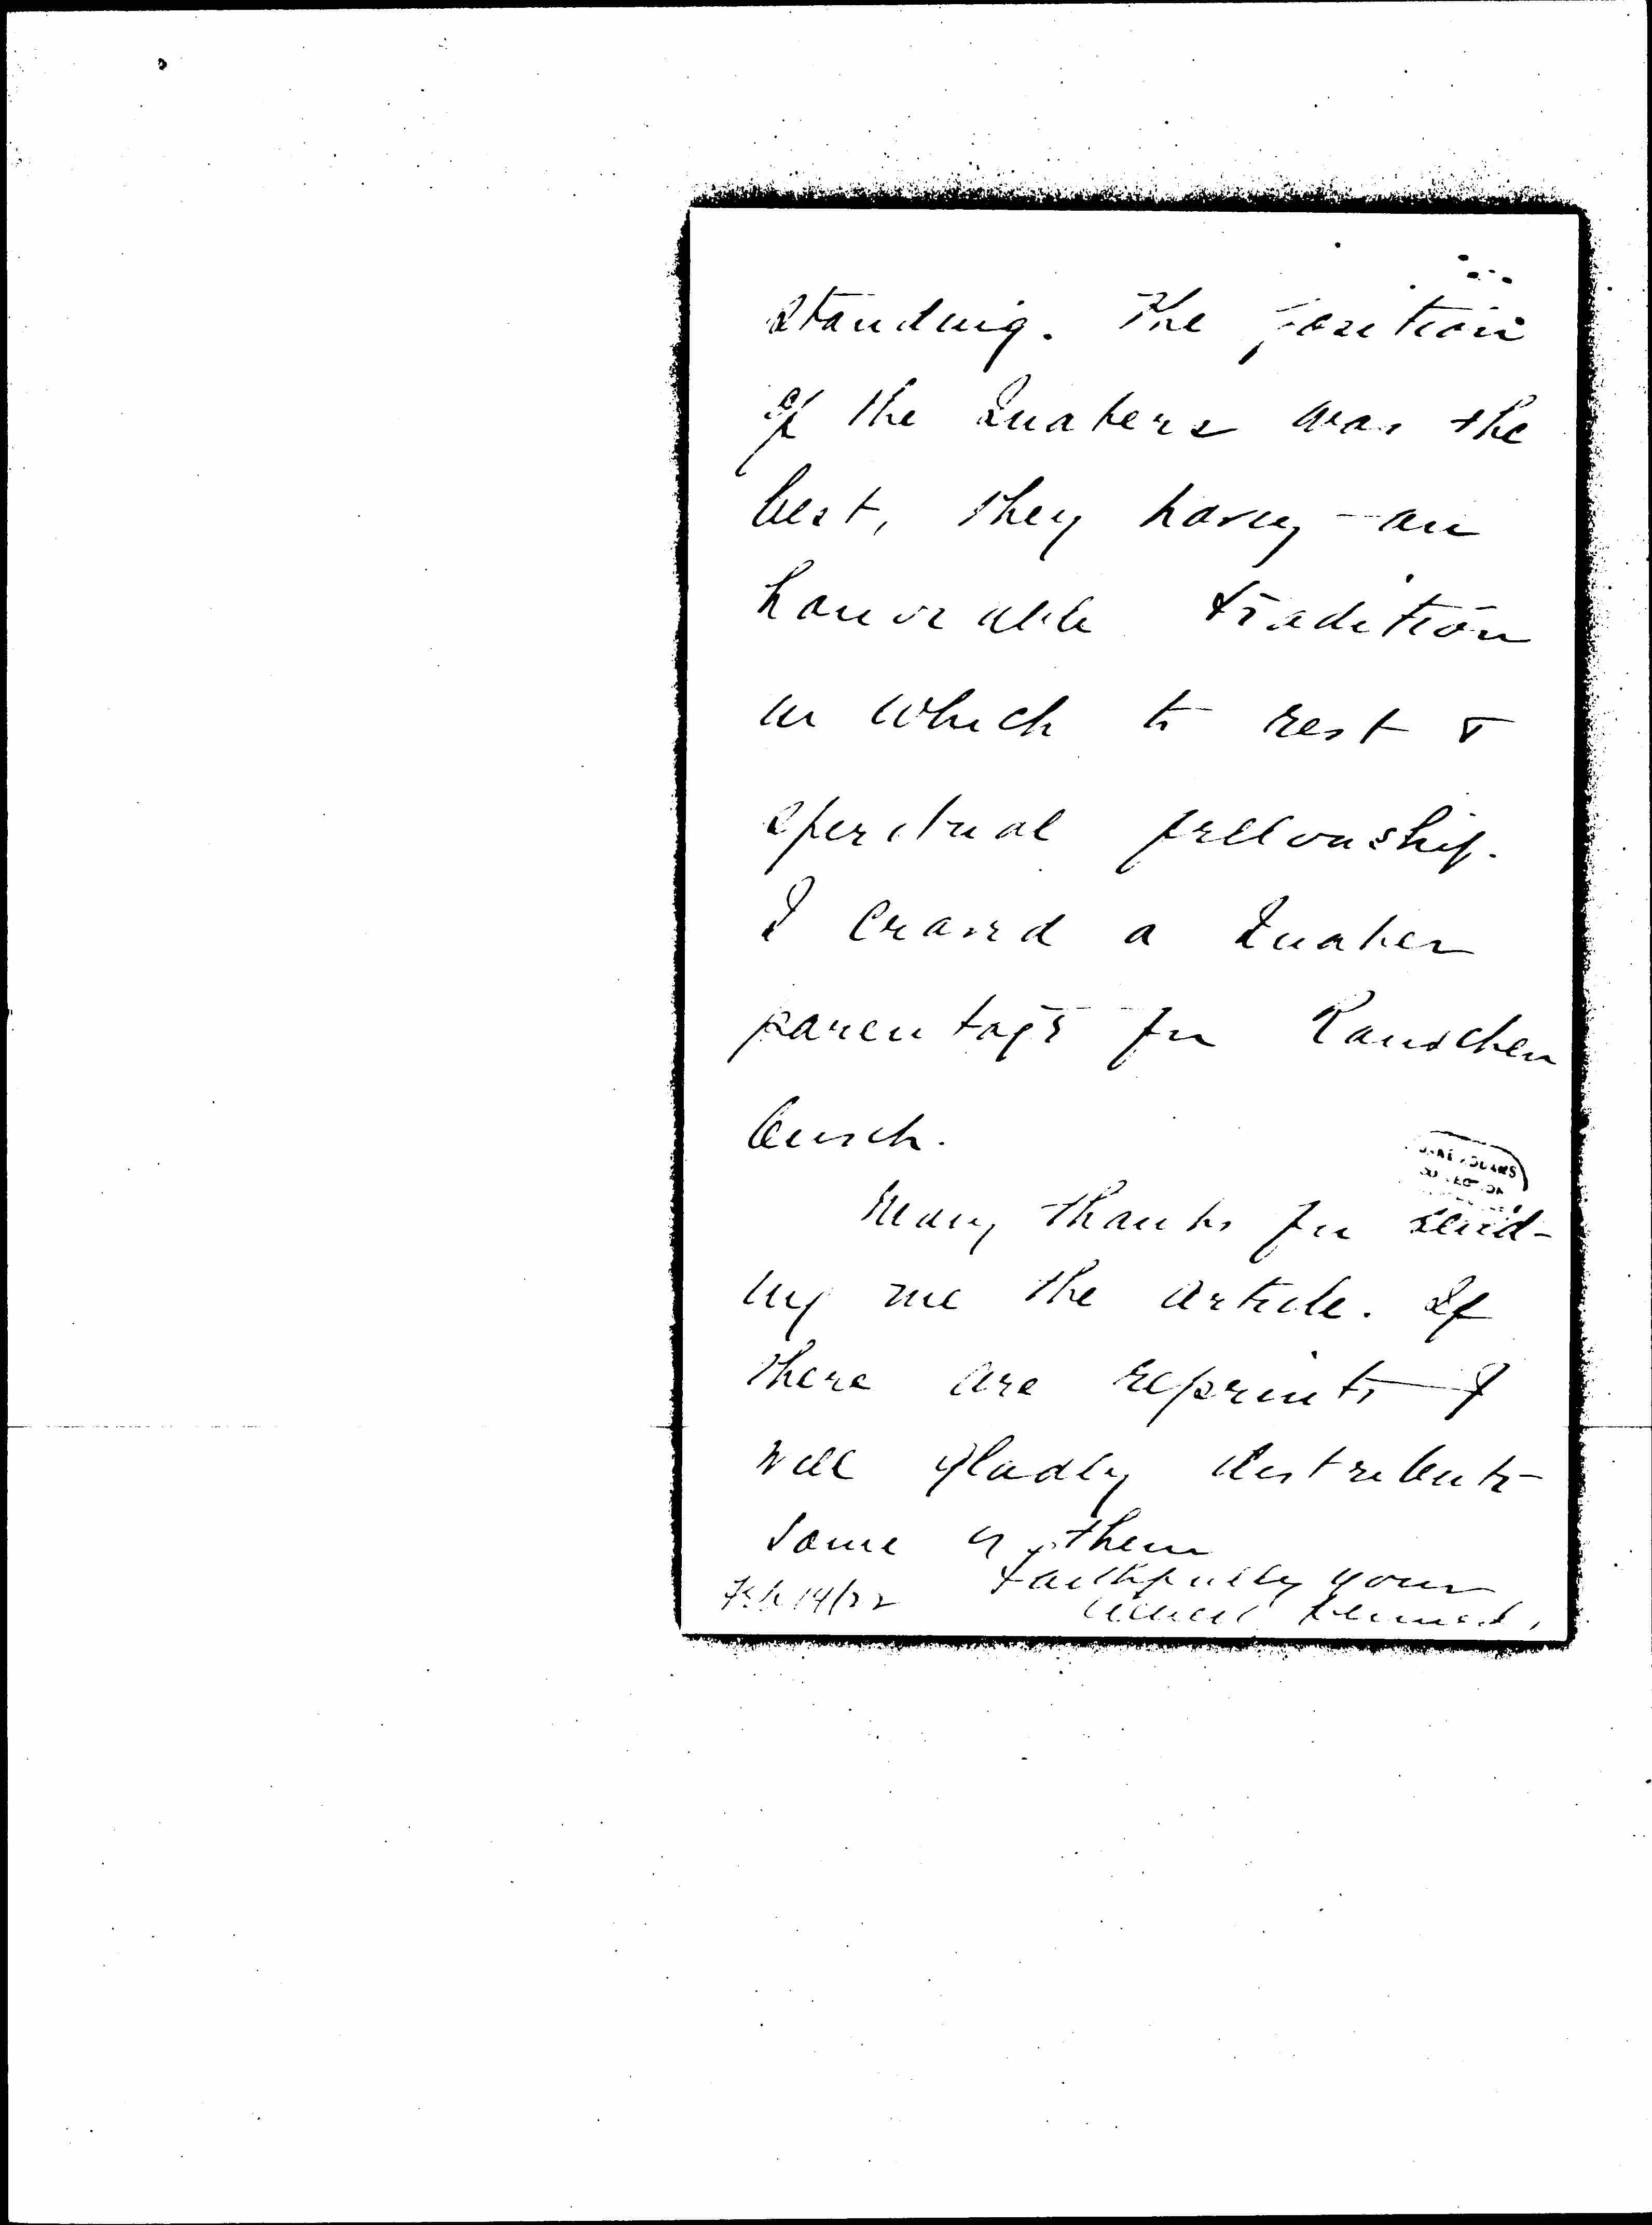 standing. The position
of the Quakers was the
best, they having an
honorable tradition
in which to rest &
spiritual fellowship.
I craved a Quaker
parentage for Rauschen
busch.
JANE ADDAMS
COLLECTION
Many thanks for send-
ing me the article. If
there are reprints I
will gladly distribute
some of them
Faithfully yours
Feb 14/22 Albert Kennedy